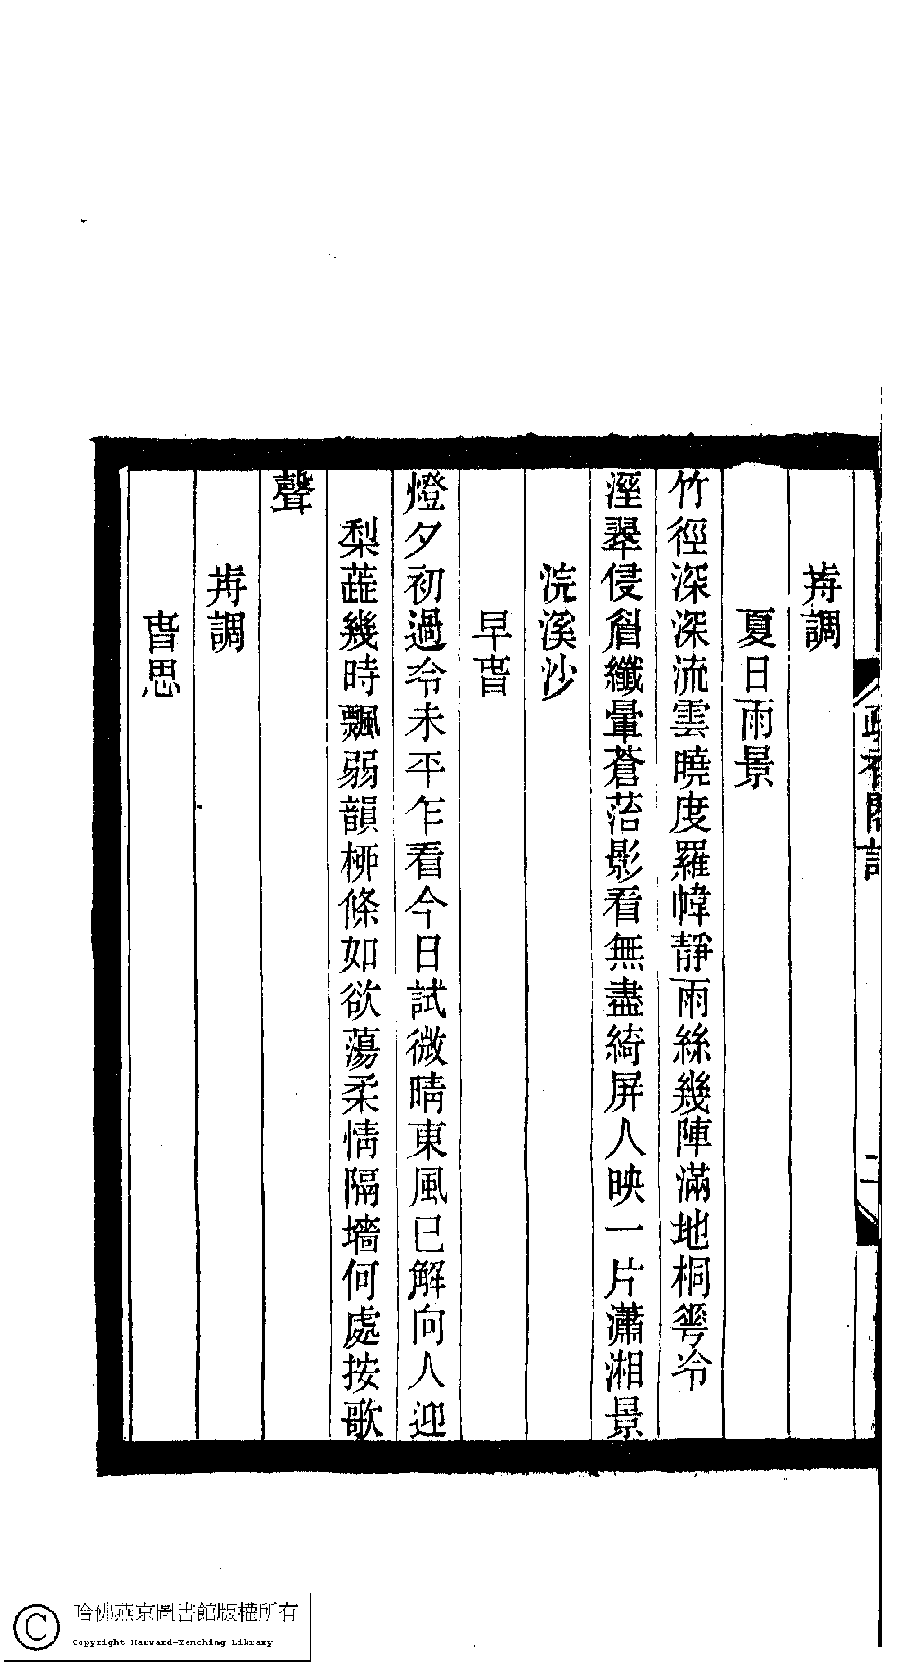 歬調
夏日雨景
竹徑深深流雲曉度羅幃靜雨絲幾陣滿地桐蕐冷
溼翠侵眉纖暈蒼苔影看無盡綺屏人映一片瀟湘景
浣溪沙
早旾
燈夕初過冷未平乍看今日試微晴東風已解向人迎
梨蕋幾時飄弱韻桺條如欲蕩柔情隔墻何處按歌
聲
歬調
旾思
哈佛燕京圖書館版權所有
Copyright Harvard-Yenching Library